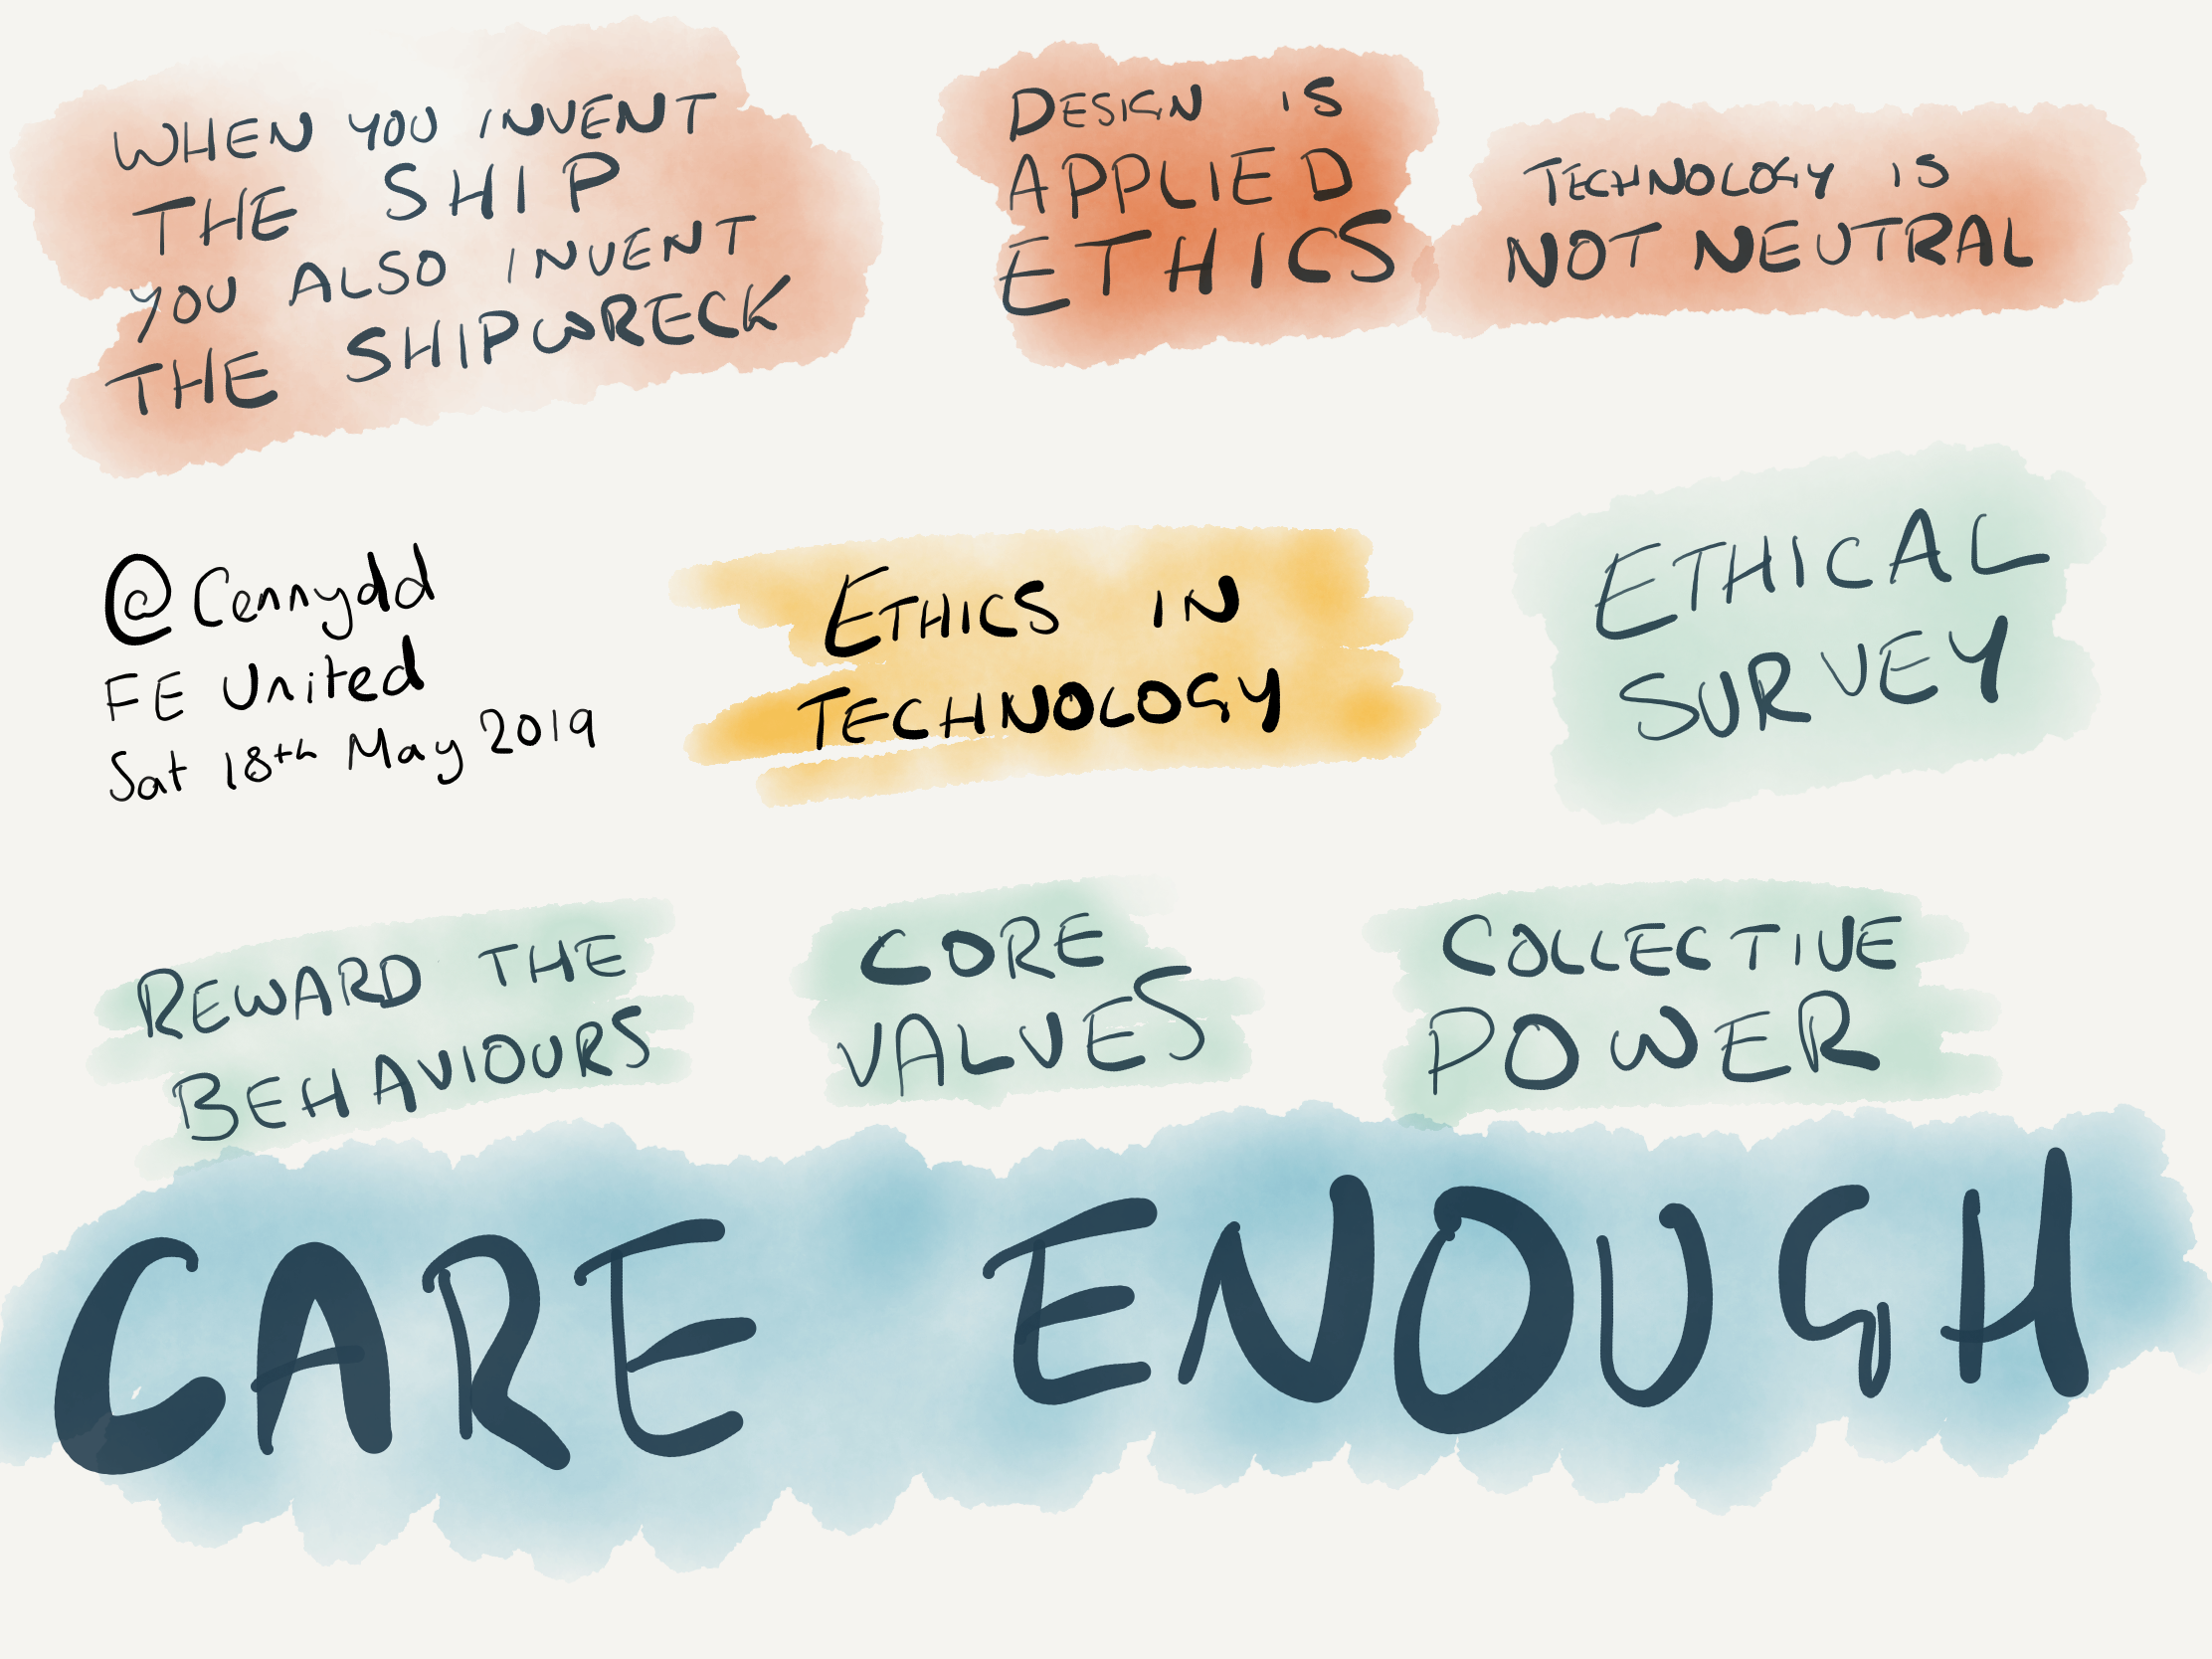 WHEN YOU INVENT
THE SHIP
YOU ALSO INVENT
THE SHIPWRECK
DESIGN IS
APPLIED
ETHICS
TECHNOLOGY IS
NOT NEUTRAL
@Cennydd
FE United
Sat 18th May 2019
ETHICS IN
TECHNOLOGY
ETHICAL
SURVEY
REWARD THE
BEHAVIOURS
CORE
VALUES
COLLECTIVE
POWER
CARE ENOUGH